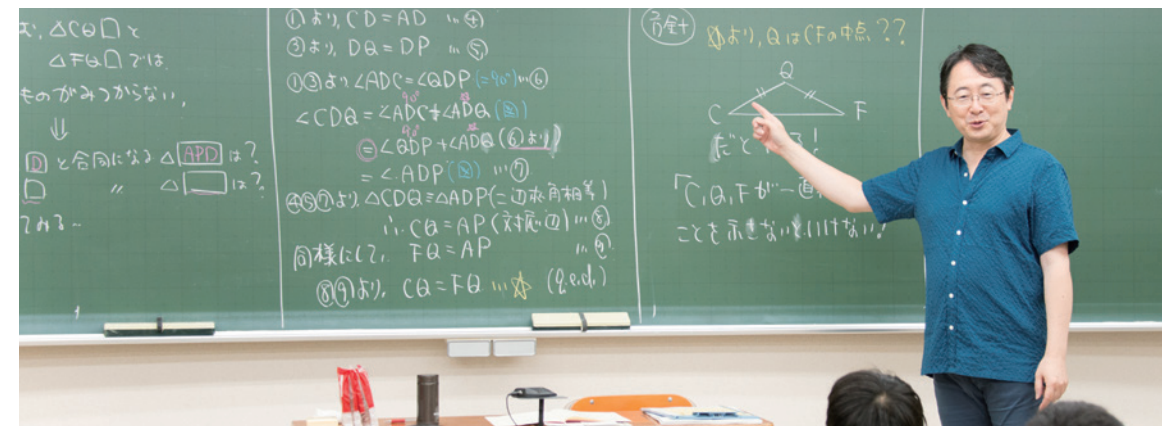 △CQDと
△FQDでは、
ものがみつからない。
⇓
Dと合同になる△APDは？
〃 △ は？
てみる…
①より, CD=AD …④
③より, DQ=DP …⑤
①③より∠ADC=∠QDP(=90°)…⑥
90°
∠CDQ=∠ADC+∠ADQ(図)
90°
=∠QDP+∠ADQ(⑥より)
=∠ADP(図) …⑦
④⑤⑦より△CDQ≡△ADP(二辺夾角相等)
∴CQ=AP(対応辺)…⑧
同様にして, FQ=AP …⑨
⑧⑨より, CQ=FQ …☆ (q.e.d.)
より, QはCFの中点??
Q
C F
だと
「C,Q,Fが一直
ことを示さないといけない!